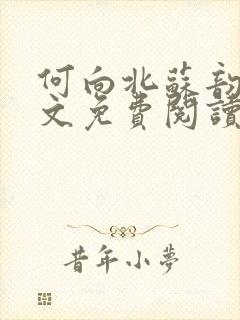 何向北蘇韵
文免費閱讀
昔年小夢